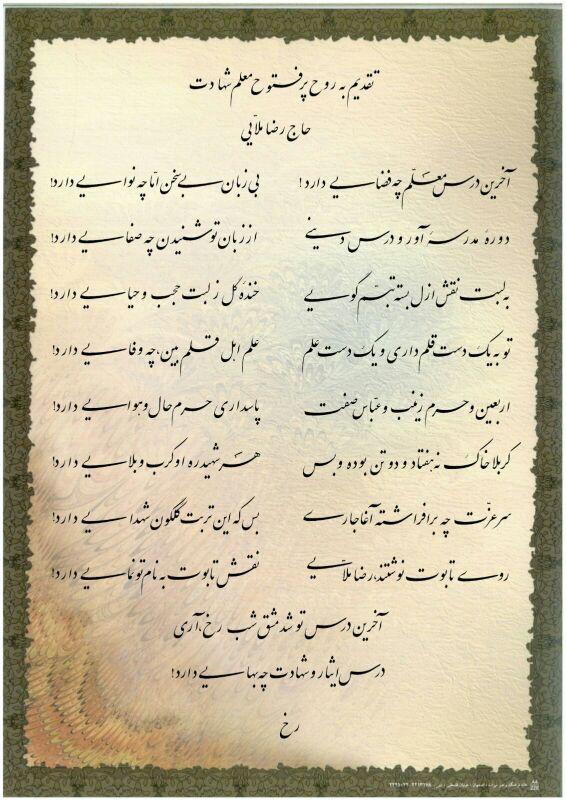 تقدیم به روح پرفتوح معلم شهادت
حاج رضا ملایی
آخرین درس معلّم چه فضایی دارد! بی زبان بی سخن امّا چه نوایی دارد!
دورهٔ مدرسه آور و درس دینی از زبان تو شنیدن چه صفایی دارد!
به لبت نقش ازل بسته تبسّم گویی خندهٔ گل ز لبت حجب و حیایی دارد!
تو به یک دست قلم داری و یک دست علم علم اهل قلم بین، چه وفایی دارد!
اربعین و حرم زینب و عبّاس صفت پاسداری حرم حال و هوایی دارد!
کربلا خاک نه هفتاد و دو تن بوده و بس هر شهید ره او کرب و بلایی دارد!
سر عزّت چه برافراشته آغاجاری بس که این تربت گلگون شهدایی دارد!
روی تابوت نوشتند، رضا ملایی نقش تابوت به نام تو نمایی دارد!
آخرین درس تو شد مشق شب رخ، آری
درس ایثار و شهادت چه بهایی دارد!
رخ